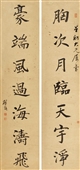 胸次月臨天宇淨
豪端風過海濤飛